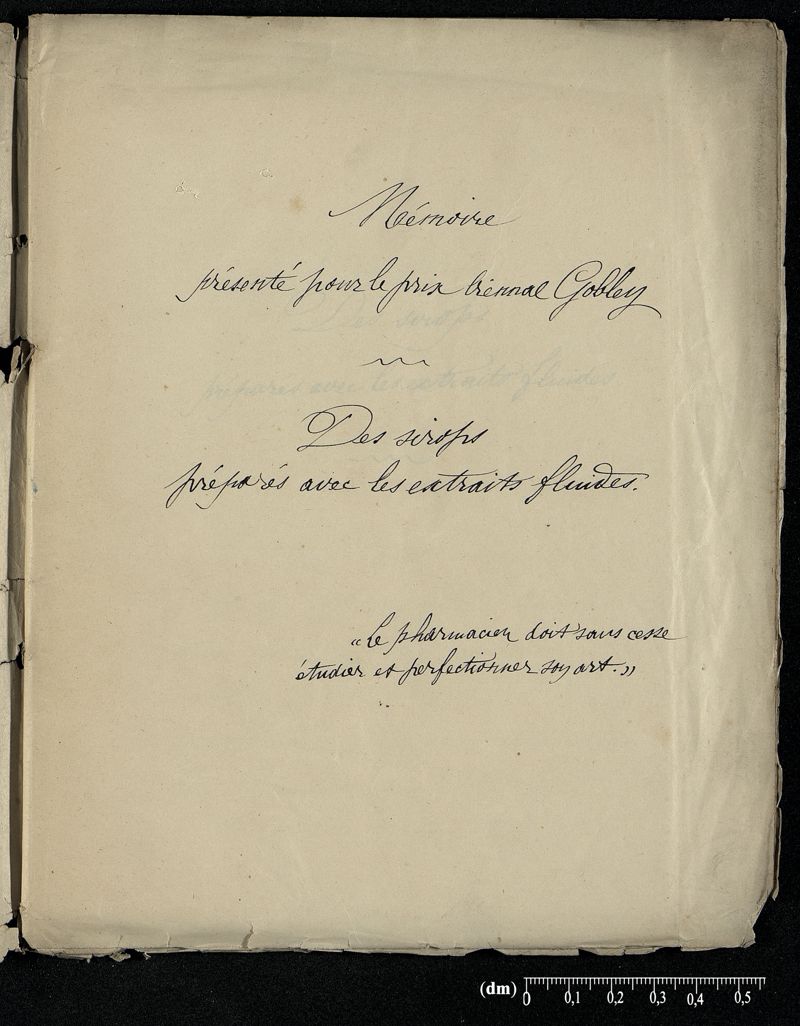 Mémoire
présenté pour le prix biennal Gobley
Des sirops
préparés avec les extraits fluides.
"Le pharmacien doit sans cesse
étudier et perfectionner son art."
(dm) 0 0,1 0,2 0,3 0,4 0,5